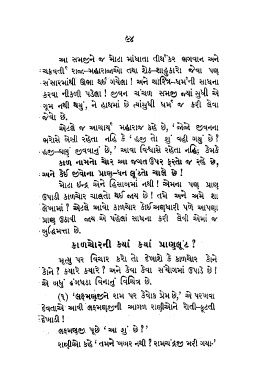 ૯૪
આ સમજીને જ મોટા માંધાતા તીર્થંકર ભગવાન અને
ચક્રવર્તી રાજા-મહારાજાઓ તથા શેઠ-શાહુકારો જેવા પણ
સંસારમાંથી ઉભા થઈ ગયેલા! અને ચારિત્ર-ધર્મની સાધના
કરવા નીકળી પડેલા! જીવન ચંચળ સમજી જ્યાં સુધી એ
ગુમ નથી થયું, ને હાથમાં છે ત્યાંસુધી ધર્મ જ કરી લેવા
જેવો છે.
એટલે જ આચાર્ય મહારાજ કહે છે, ‘એવા જીવનના
ભરોસે એવી રહેતા નહિ કે ‘હજી તો શું વહી ગયું છે?
હજી ઘણું જીવવાનું છે,’ આવા વિશ્વાસે રહેતા નહિ; કેમકે
કાળ નામનો ચોર આ જગત ઉપર ફરતો જ રહે છે,
અને કેઈ જીવોના પ્રાણ-ધન લૂંટતો ચાલે છે!
મોટા ઇન્દ્ર એને હિસાબમાં નથી! એમના પણ પ્રાણ
ઉપાડી કાળચોર ચાલતો થઈ જાય છે! તમે અને અમે શા
લેખામાં? એટલે આપો કાળચોર કોઈ અણધારી પળે આપણા
પ્રાણ ઉઠાવી જાય એ પહેલાં સાધના કરી લેવી એમાં જ
બુદ્ધિમત્તા છે.
કાળચોરની ક્યાં ક્યાં પ્રાણલૂંટ?
મૃત્યુ પર વિચાર કરો તો દેખાશે કે કાળચોર કોને
કોને? ક્યારે ક્યારે? અને કેવા કેવા સંયોગમાં ઉપાડે છે!
એ બધું ઢંગધડા વિનાનું વિચિત્ર છે.
(૧) ‘લક્ષ્મણજીને રામ પર કેવોક પ્રેમ છે,’ એ પરખવા
દેવતાએ આવી લક્ષ્મણજીની આગળ રાણીઓને રોતી-કૂટતી
દેખાડી!
લક્ષ્મણજી પૂછે ‘આ શું છે?’
રાણીઓ કહે ‘તમને ખબર નથી? રામચંદ્રજી મરી ગયા-’